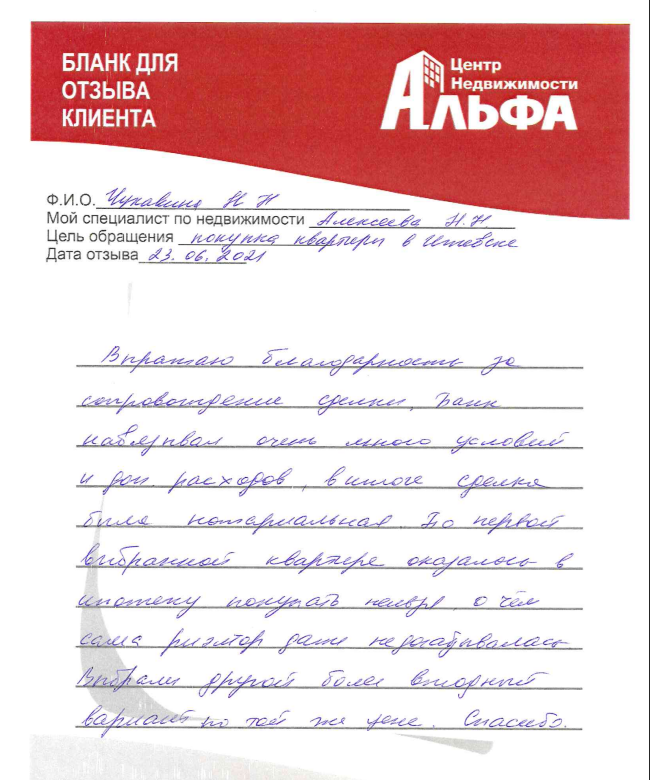 БЛАНК ДЛЯ
ОТЗЫВА
КЛИЕНТА
Центр
Недвижимости
АЛЬФА
Ф.И.О. Чукавина Н Н
Мой специалист по недвижимости Алексеева Н.Н.
Цель обращения покупка квартиры в Ижевске
Дата отзыва 23.06.2021
Выражаю благодарность за
сопровождение сделки, Банк
навязывал очень много условий
и доп расходов, в итоге сделка
была нотариальная. По первой
выбранной квартире оказалось в
ипотеку покупать нельзя, о чём
сама риэлтор даже не догадывалась.
Выбрали другой более выгодный
вариант по той же цене. Спасибо.